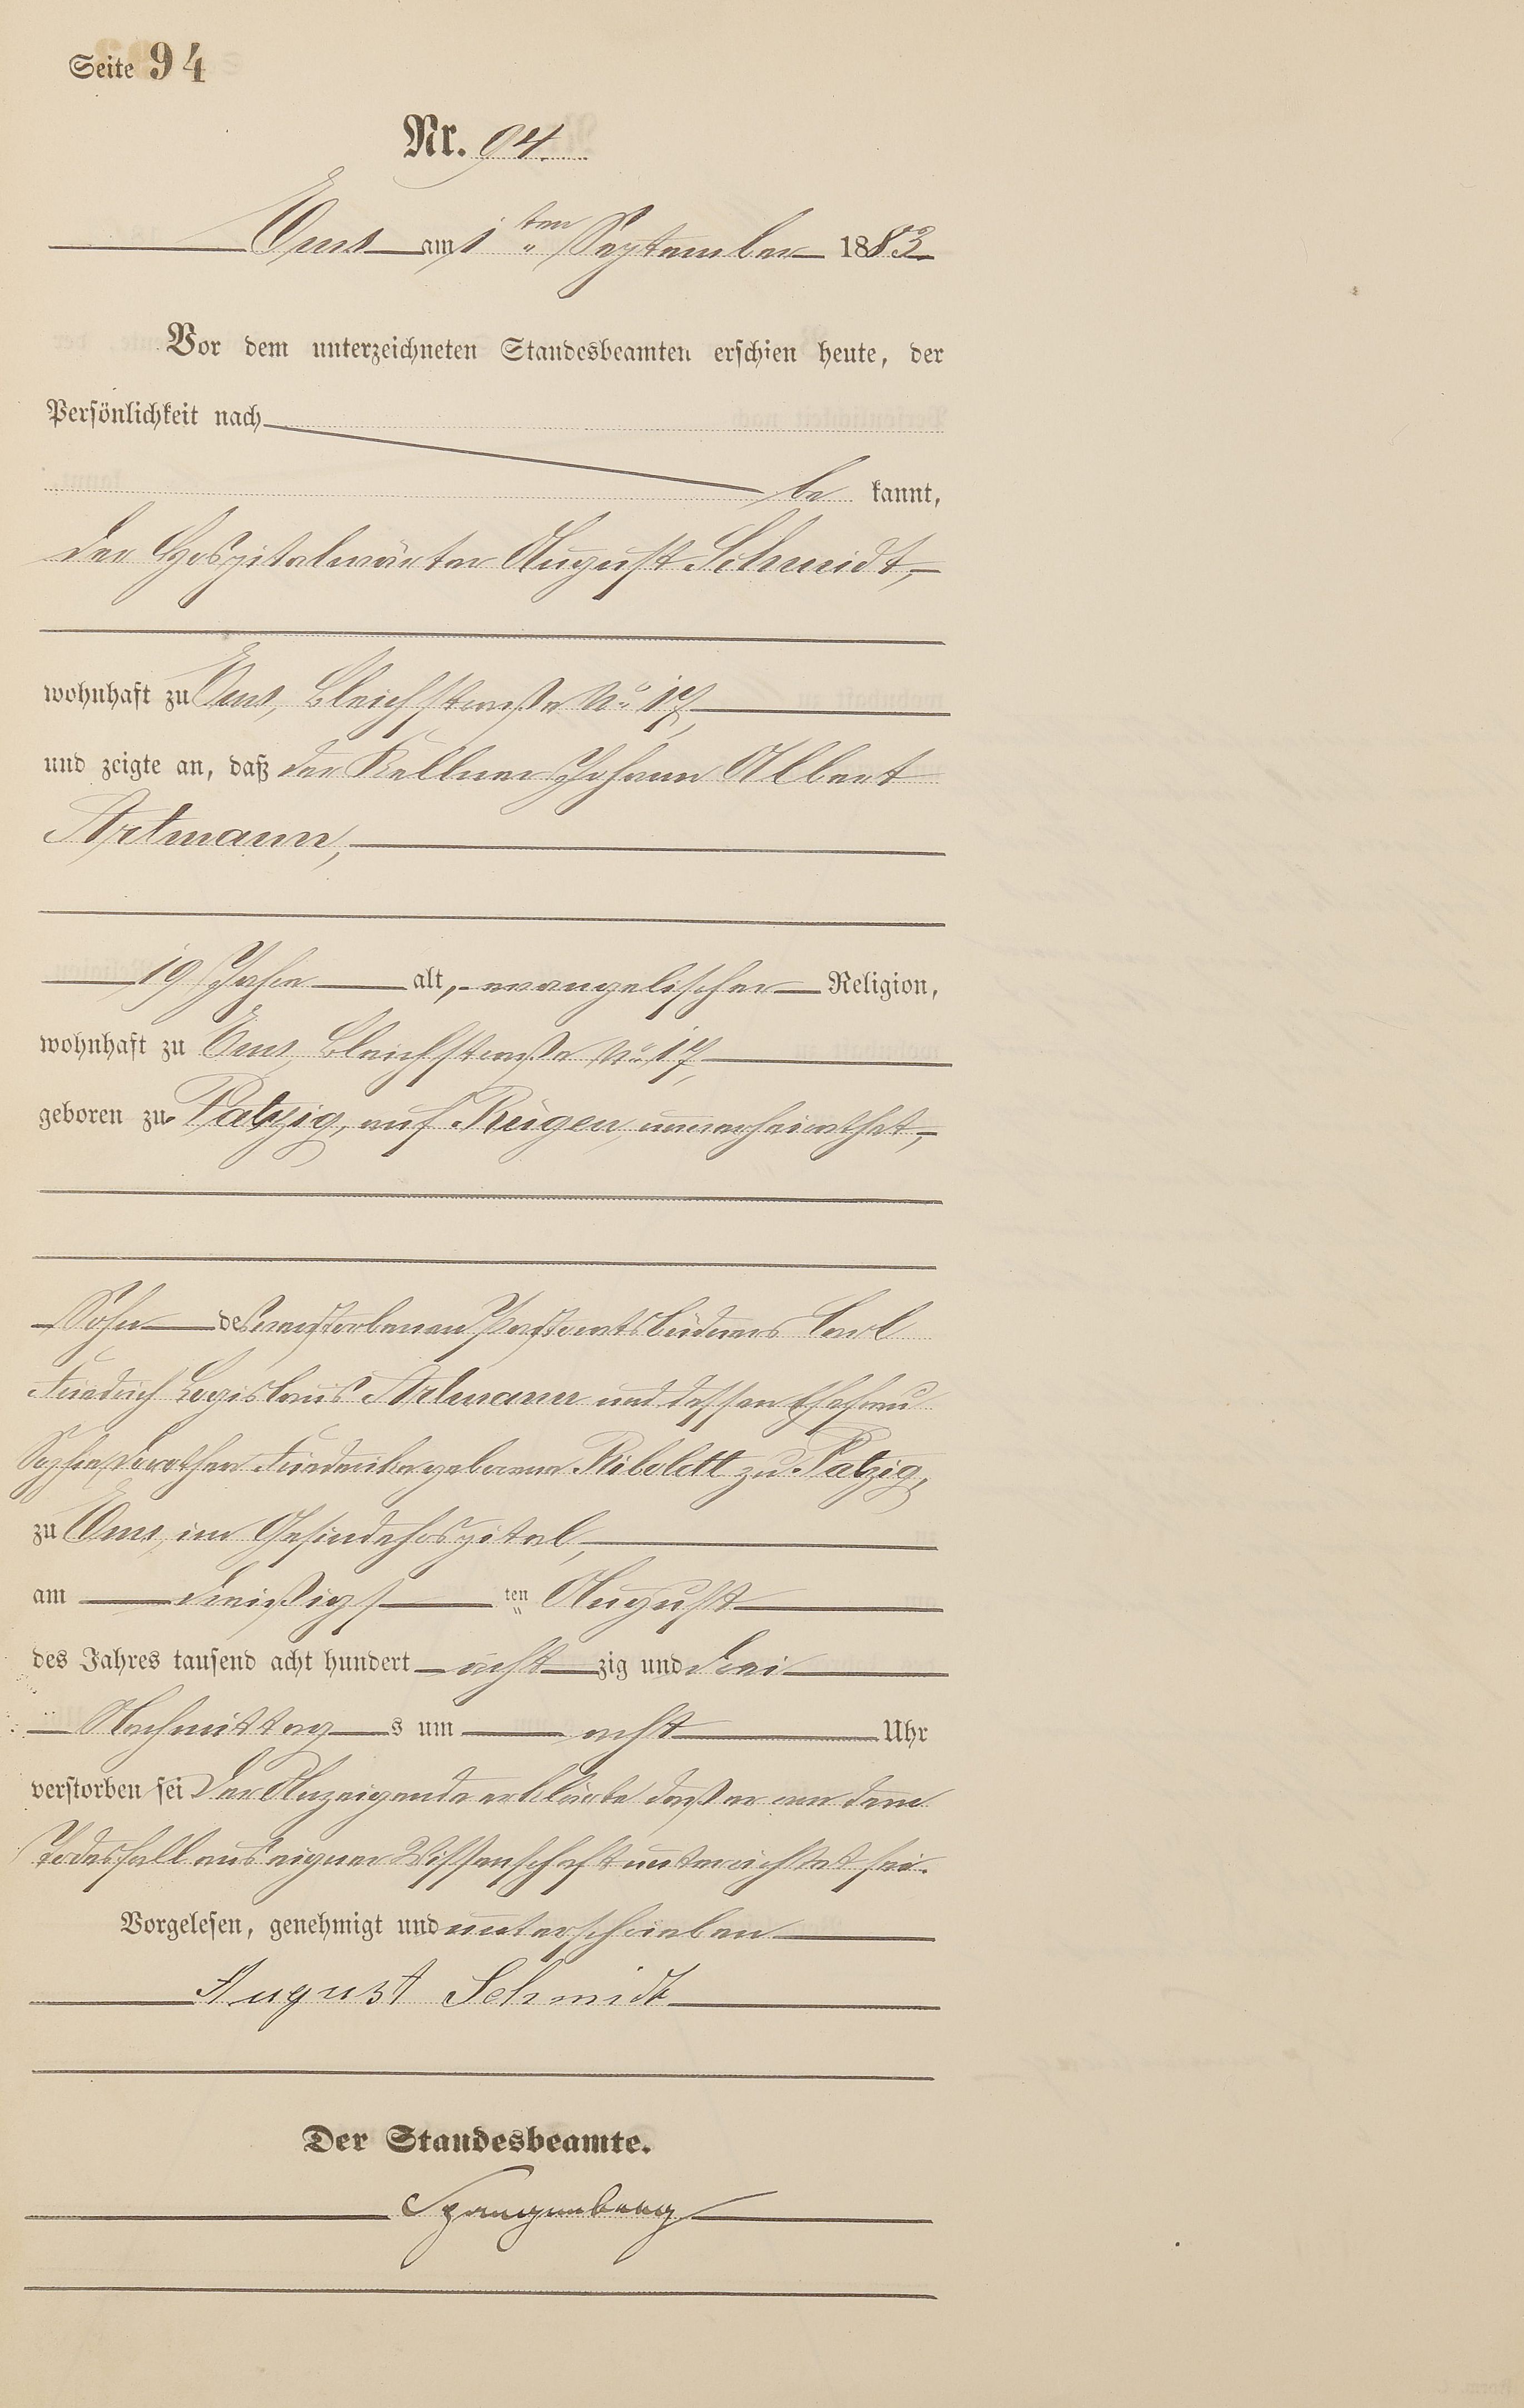 Seite 94
Nr. 94.
Ems am 1ten September 1883.
Vor dem unterzeichneten Standesbeamten erschien heute, der
Persönlichkeit nach
be kannt,
der Hospitalwärter August Schmidt,
wohnhaft zu Ems, Bleichstraße No 17,
und zeigte an, daß der Kellner Johann Albert
Artmann,
19 Jahre alt, evangelischer Religion,
wohnhaft zu Ems, Bleichstraße No 17,
geboren zu Patzig, auf Rügen, unverheirathet,
Sohn des verstorbenen Carl
Friedrich Artmann und dessen Ehefrau
Sophie Dorothea Friederike geborene zu Patzig,
zu Ems, im Gesindehospital,
am dreißigsten August
des Jahres tausend acht hundert acht zig und drei
Nachmittag s um acht Uhr
verstorben sei Der Anzeigende erklärte daß er von dem
Todesfall aus eigner Wissenschaft unterrichtet sei.
Vorgelesen, genehmigt und unterschrieben
August Schmidt
Der Standesbeamte.
Spangenberg